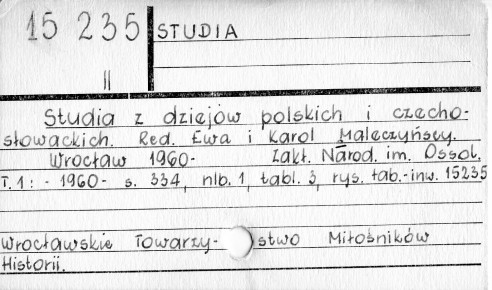 15 235 STUDIA
II
Studia z dziejów polskich i czecho-
słowackich. Red. Ewa i Karol Maleczyńscy.
Wrocław 1960- Zakł. Narod. im. Ossol.
T. 1: - 1960- s. 334, nlb. 1, tabl. 3, rys. tab.-inw. 15235
Wrocławskie Towarzy- stwo Miłośników
Historii.